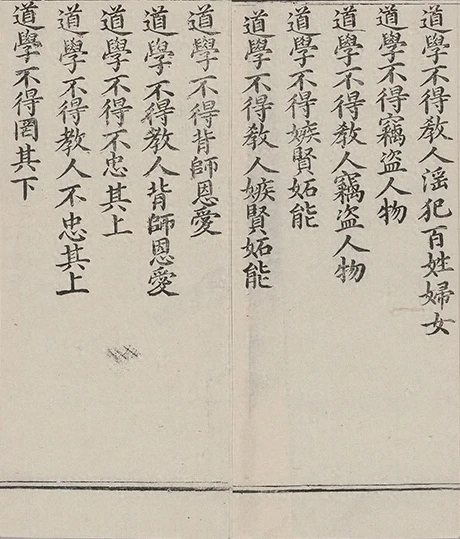 道學不得教人淫犯百姓婦女
道學不得竊盗人物
道學不得教人竊盗人物
道學不得嫉賢妬能
道學不得教人嫉賢妬能
道學不得背師恩愛
道學不得教人背師恩愛
道學不得不忠其上
道學不得教人不忠其上
道學不得罔其下